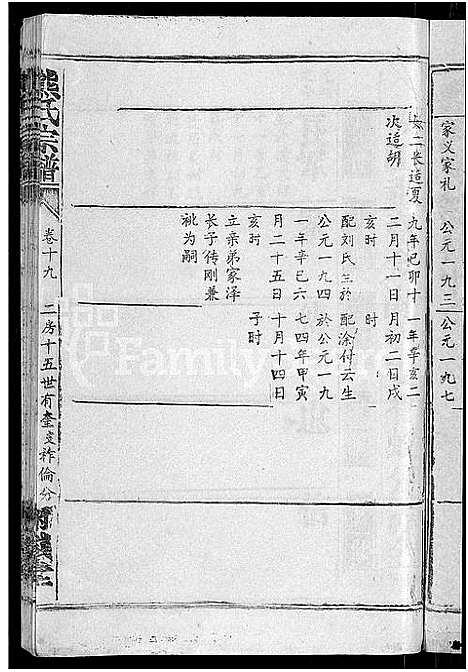 家义家礼 公元一九三 公元一九七
女二长适夏 九年己卯十 一年辛亥二
次适胡 二月十一日 月初二日戌
亥时 时
配刘氏生於 配涂付云生
公元一九四 於公元一九
一年辛巳六 七四年甲寅
月二十五日 十月十四日
亥时 子时
立亲弟家泽
长子传刚兼
祧为嗣
熊氏宗谱 卷十九 二房十五世有奎支祚倫分
Family